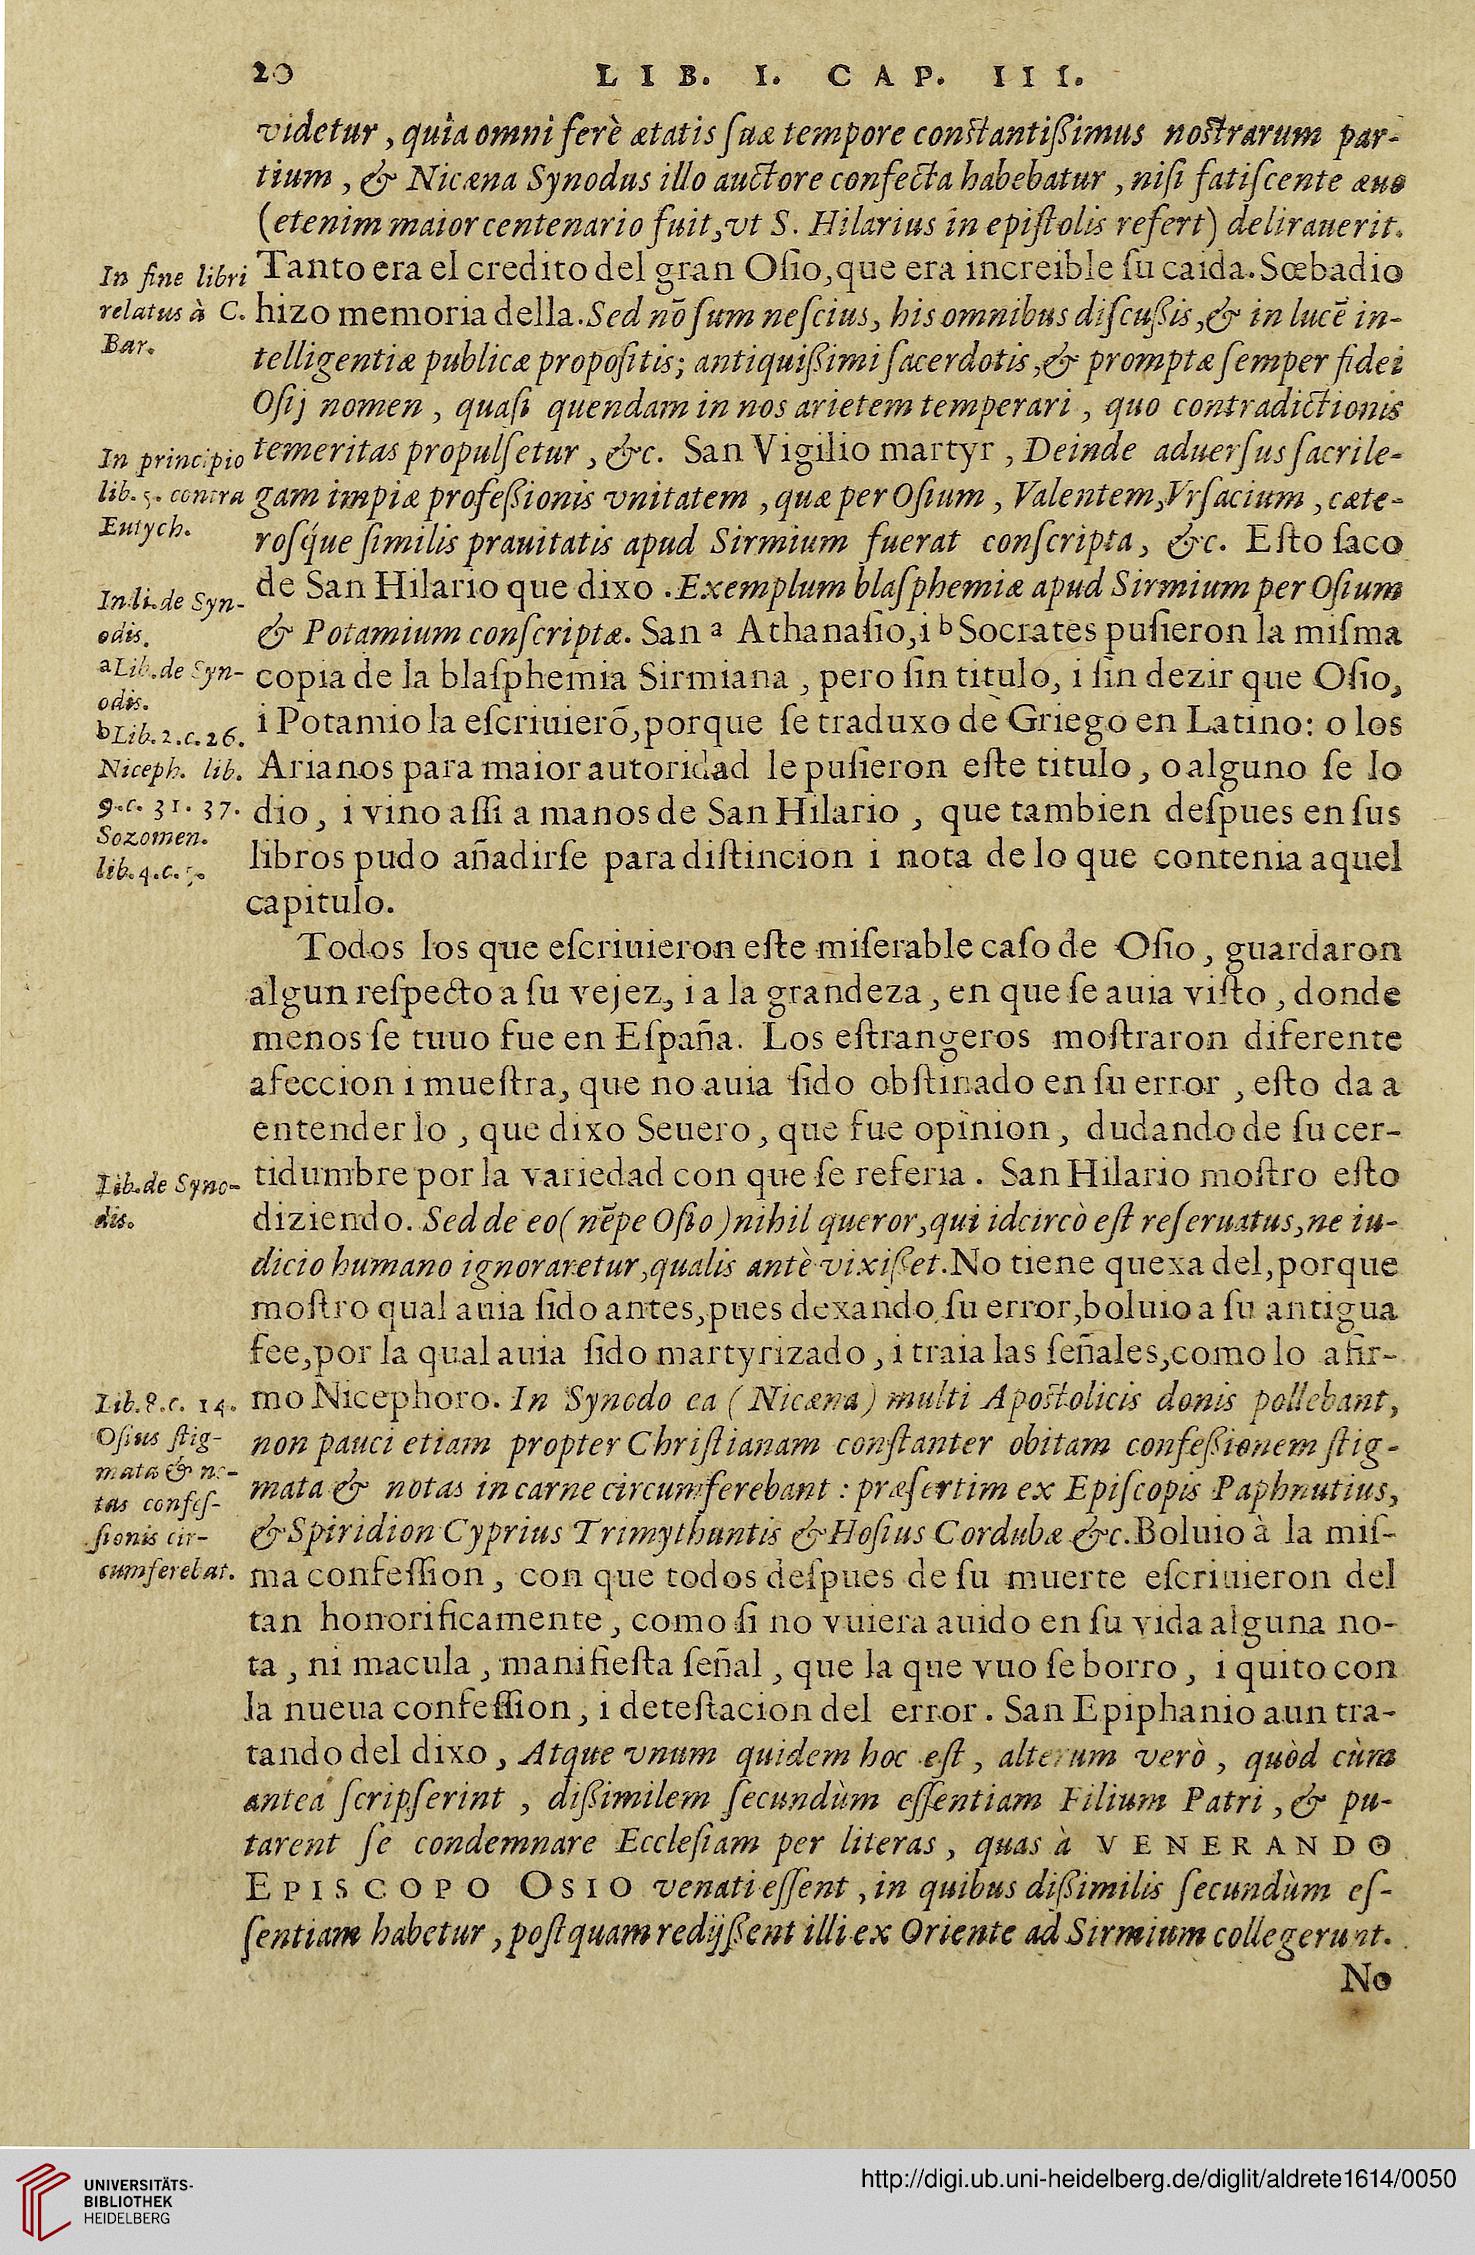 20 LIB. I. CAP. III.
videtur, quia omni ferè ætatis ſuæ tempore conſtantißimus noſtrarum par-
tium, & Nicæna Synodus illo auctore confecta habebatur, niſi fatiſcente æuo
(etenim maior centenario fuit, vt S. Hilarius in epiſtolis refert) delirauerit.
Tanto era el credito del gran Oſio, que era increible ſu caida. Sœbadio
hizo memoria della. Sed nō ſum neſcius, his omnibus diſcußis, & in lucē in-
telligentiæ publicæ propoſitis; antiquißimi ſacerdotis, & promptæ ſemper fidei
Oſij nomen, quaſi quendam in nos arietem temperari, quo contradictionis
temeritas propulſetur, &c. San Vigilio martyr, Deinde aduerſus ſacrile-
gam impiæ profeßionis vnitatem, quæ per Oſium, Valentem, Vrſacium, cæte-
roſq́ue ſimilis prauitatis apud Sirmium fuerat conſcripta, &c. Eſto ſaco
de San Hilario que dixo. Exemplum blaſphemiæ apud Sirmium per Oſium
& Potamium conſcriptæ. San a Athanaſio, i b Socrates puſieron la miſma
copia de la blaſphemia Sirmiana, pero ſin titulo, i ſin dezir que Oſio,
i Potamio la eſcriuierō, porque ſe traduxo de Griego en Latino: o los
Arianos para maior autoridad le puſieron eſte titulo, o alguno ſe lo
dio, i vino aſſi a manos de San Hilario, que tambien deſpues en ſus
libros pudo añadirſe para diſtincion i nota de lo que contenia aquel
capitulo.
Todos los que eſcriuieron eſte miſerable caſo de Oſio, guardaron
algun reſpecto a ſu vejez, i a la grandeza, en que ſe auia viſto, donde
menos ſe tuuo fue en Eſpaña. Los eſtrangeros moſtraron diferente
afeccion i mueſtra, que no auia ſido obſtinado en ſu error, eſto da a
entender lo, que dixo Seuero, que fue opinion, dudando de ſu cer-
tidumbre por la variedad con que ſe referia. San Hilario moſtro eſto
diziendo. Sed de eo (nēpe Oſio) nihil queror, qui idcircò eſt reſeruatus, ne iu-
dicio humano ignoraretur, qualis antè vixißet. No tiene quexa del, porque
moſtro qual auia ſido antes, pues dexando ſu error, boluio a ſu antigua
fee, por la qual auia ſido martyrizado, i traia las ſeñales, como lo afir-
mo Nicephoro. In Synodo ea (Nicæna) multi Apoſtolicis donis pollebant,
non pauci etiam propter Chriſtianam conſtanter obitam confeßionem ſtig-
mata & notas in carne circumferebant: præſertim ex Epiſcopis Paphnutius,
& Spiridion Cyprius Trimythuntis & Hoſius Cordubæ &c. Boluio à la miſ-
ma confeſſion, con que todos deſpues de ſu muerte eſcriuieron del
tan honorificamente, como ſi no vuiera auido en ſu vida alguna no-
ta, ni macula, manifieſta ſeñal, que la que vuo ſe borro, i quito con
la nueua confeſſion, i deteſtacion del error. San Epiphanio aun tra-
tando del dixo, Atque vnum quidem hoc eſt, alterum verò, quòd cùm
antea ſcripſerint, dißimilem ſecundùm eſſentiam Filium Patri, & pu-
tarent ſe condemnare Eccleſiam per literas, quas à VENERANDO
EPISCOPO OSIO venati eſſent, in quibus dißimilis ſecundùm eſ-
ſentiam habetur, poſtquam redijßent illi ex Oriente ad Sirmium collegerunt.
No
In fine libri
relatus à C.
Bar.
In principio
lib. 5. contra
Eutych.
In li. de Syn-
odis.
a Lib. de Syn-
odis.
b Lib. 2. c. 26.
Niceph. lib.
9. c. 31. 37.
Sozomen.
lib. 4. c.
Lib. de Syno-
dis.
Lib. 8. c. 14.
Oſius ſtig-
mata & no-
tas confeſ-
ſionis cir-
cumferebat.
UNIVERSITÄTS-
BIBLIOTHEK
HEIDELBERG
http://digi.ub.uni-heidelberg.de/diglit/aldrete1614/0050